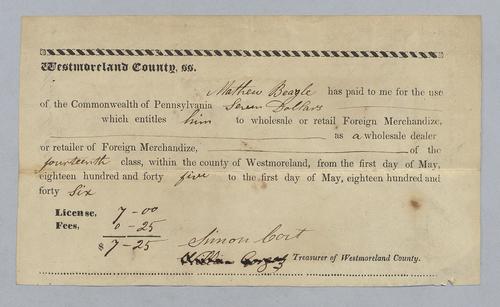 Westmoreland County, ss.
Mathew Beagle has paid to me for the use
of the Commonwealth of Pennsylvania Seven Dollars
which entitles him to wholesale or retail Foreign Merchandize,
as a wholesale dealer
or retailer of Foreign Merchandize, of the
fourteenth class, within the county of Westmoreland, from the first day of May,
eighteen hundred and forty five to the first day of May, eighteen hundred and
forty Six
License, 7-00
Fees, 0-25
$ 7-25
Simon Cort
Treasurer of Westmoreland County.